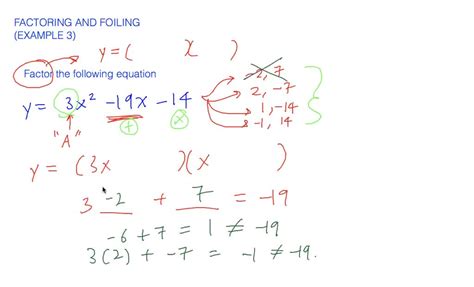 FACTORING AND FOILING
(EXAMPLE 3)
y = ( x )
Factor the following equation
y = 3x² -19x -14
-2, 7
2, -7
1, -14
-1, 14
+ x
"A"
y = (3x )(x )
3 -2 + 7 = -19
-6 + 7 = 1 ≠ -19
3(2) + -7 = -1 ≠ -19.